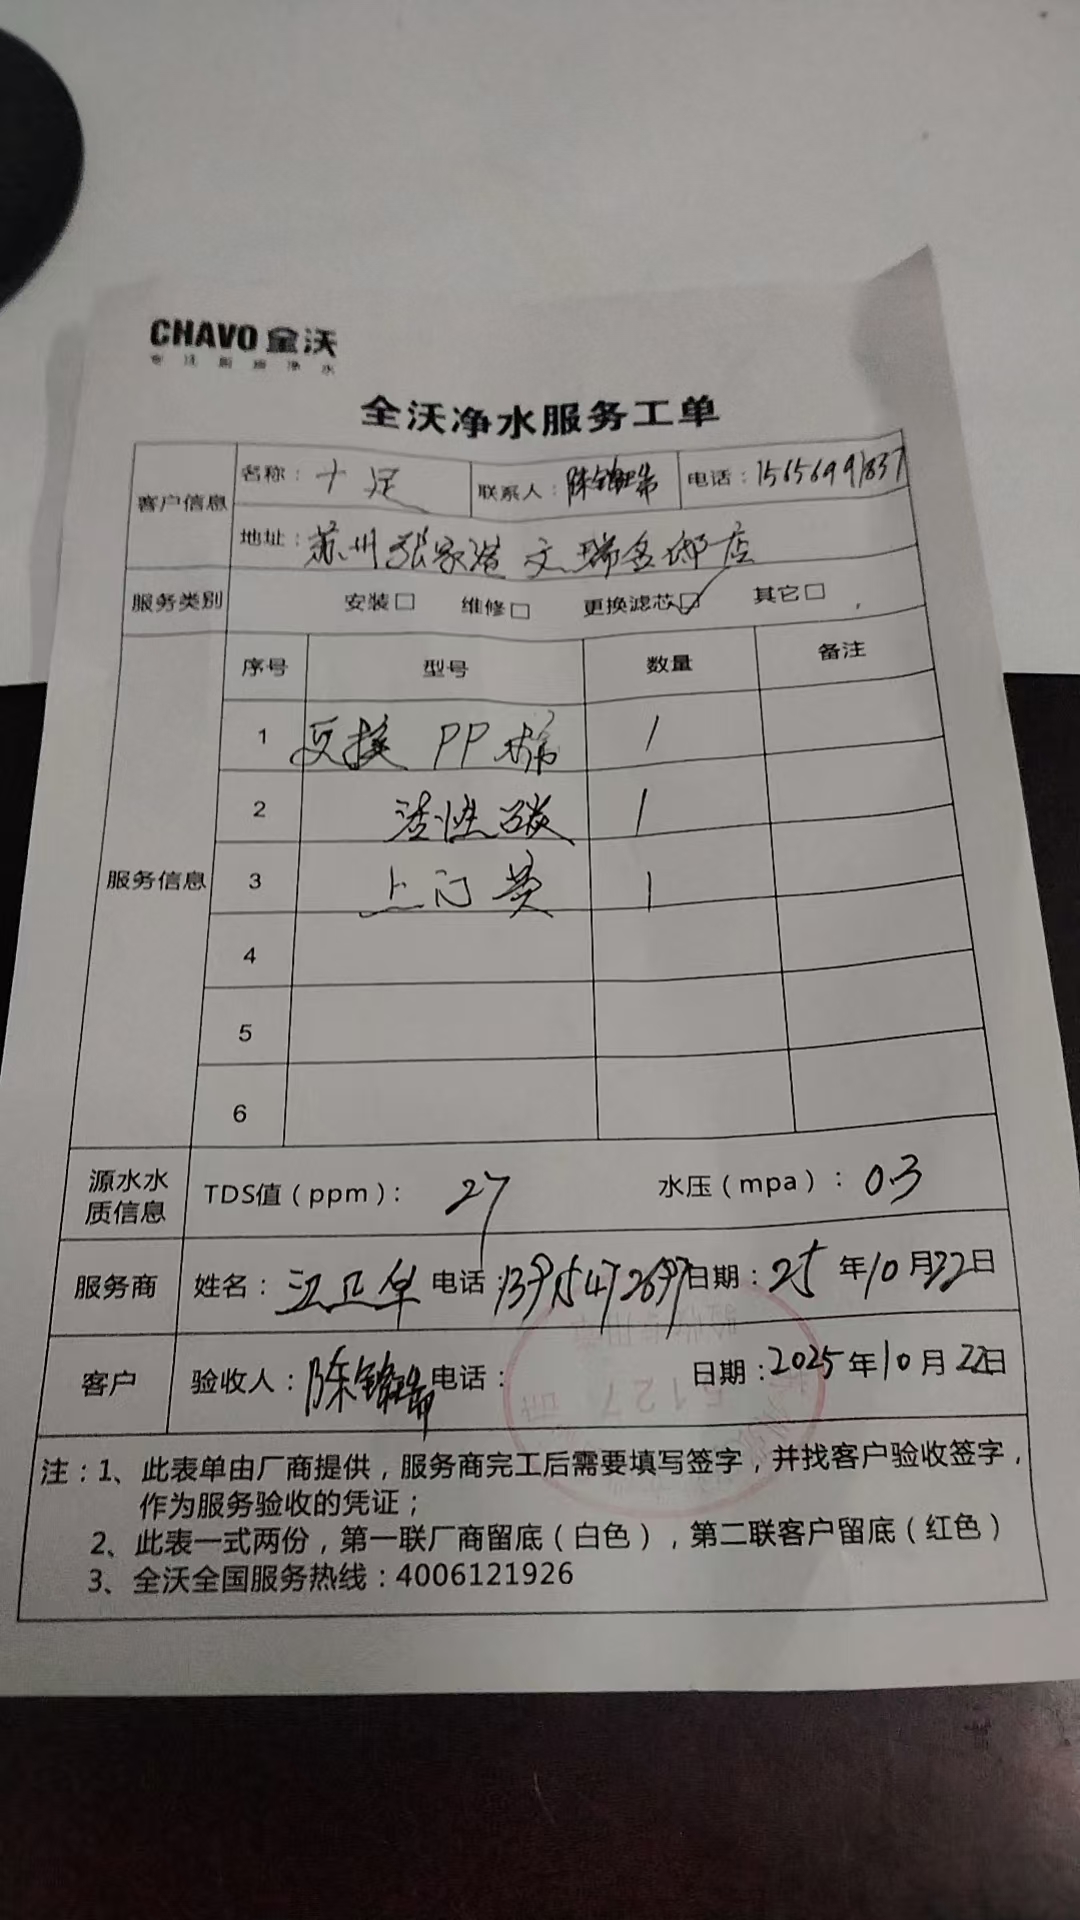 CHAVO 全沃
专注厨房净水
全沃净水服务工单
客户信息 名称：十足 联系人：陈锦瑞 电话：15656991837
地址：苏州张家港文瑞名邸店
服务类别 安装□ 维修□ 更换滤芯☑ 其它□
服务信息 序号 型号 数量 备注
1 更换 PP棉 1
2 活性碳 1
3 上门费 1
4
5
6
源水水质信息 TDS值（ppm）：27 水压（mpa）：0.3
服务商 姓名：江卫华 电话： 日期：25年10月22日
客户 验收人：陈锦瑞 电话： 日期：2025年10月22日
注：1、此表单由厂商提供，服务商完工后需要填写签字，并找客户验收签字，
作为服务验收的凭证；
2、此表一式两份，第一联厂商留底（白色），第二联客户留底（红色）
3、全沃全国服务热线：4006121926